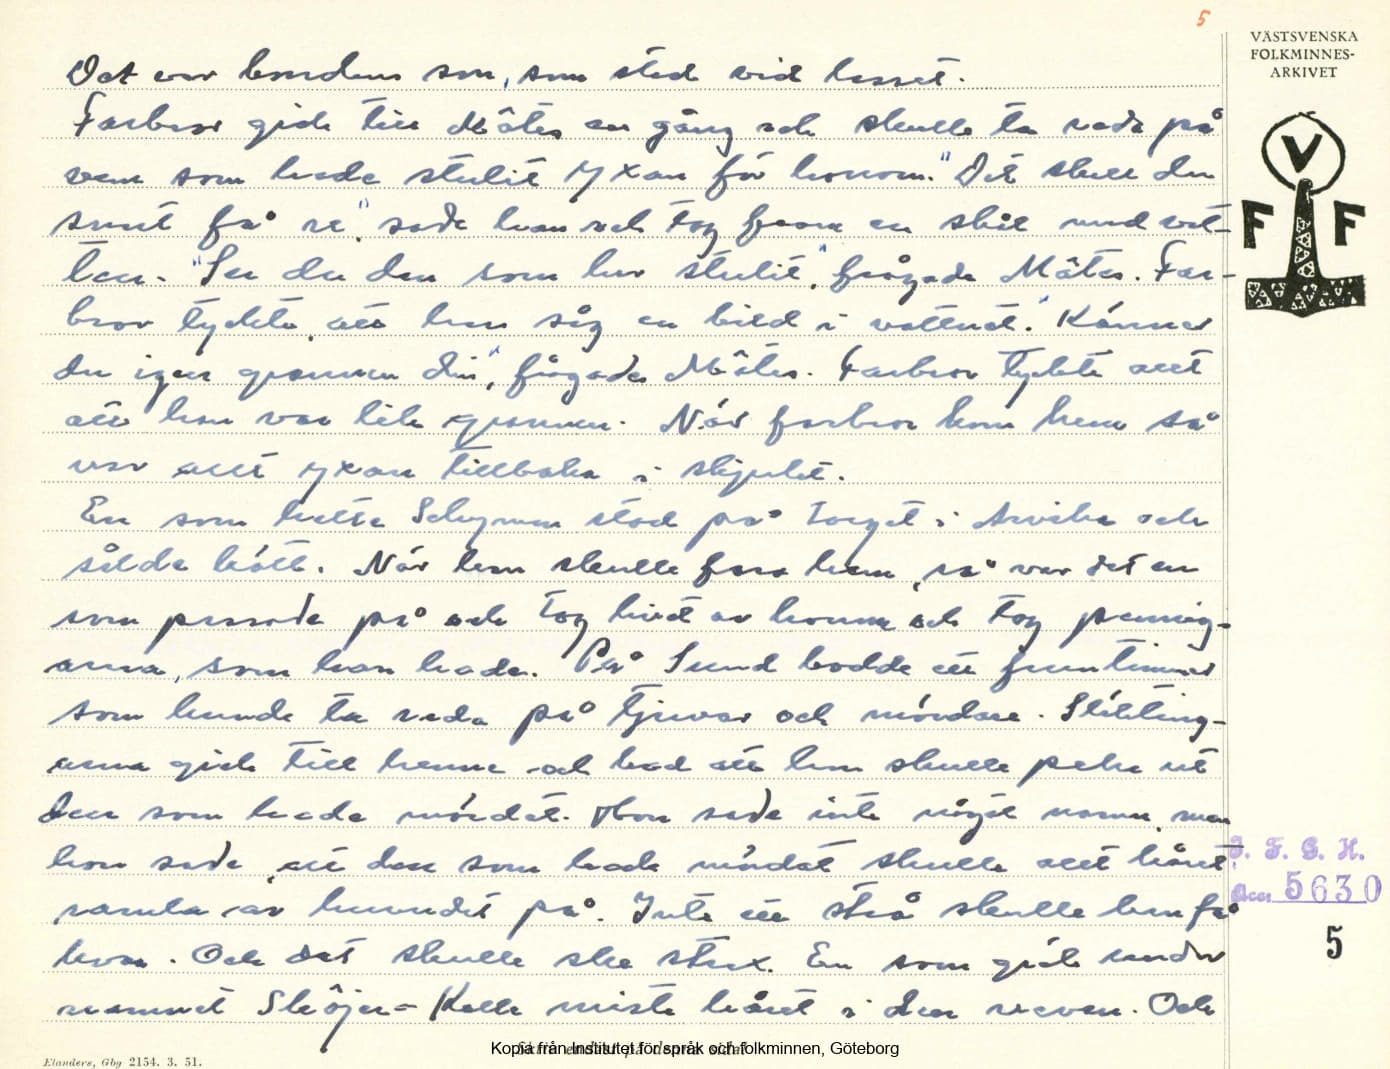 5
VÄSTSVENSKA
FOLKMINNES-
ARKIVET
V
F F
Det var bondens son, som stod vid lasset.
Farbror gick till Mâtes en gång och skulle ta reda på
vem som hade stulit yxan för honom. "Det skall du
snart få se", sade han och tog fram en skål med vat-
ten. "Ser du den som har stulit", frågade Mâtes. Far-
bror tyckte, att han såg en bild i vattnet. "Känner
du igen grannen din", frågade Mâtes. Farbror tyckte allt
att han var lik grannen. När farbror kom hem så
var allt yxan tillbaka i skjulet.
En som hette stod på torget i Arvika och
sålde kött. När han skulle fara hem, så var det en
som passade på och tog livet av honom och tog penning-
arna, som han hade. På Sund bodde ett fruntimmer
som kunde ta reda på tjuvar och mördare. Släkting-
arna gick till henne och bad att hon skulle peka ut
den som hade mördat. Hon sade inte något namn, men
hon sade, att den som hade mördat skulle allt håret
ramla av huvudet på. Inte ett strå skulle han få
kvar. Och det skulle ske strax. En som gick under
namnet Slöjer-Kalle miste håret i den vevan. Och
I. F. G. H.
Acc. 5630
5
Elanders, Gbg 2154. 3. 51.
Kopia från Institutet för språk och folkminnen, Göteborg